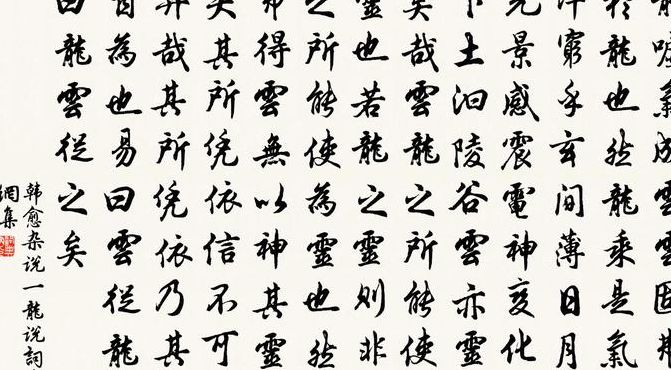 噓氣成雲雲固弗
於龍也然龍乘是氣
洋窮乎玄間薄日月
光景感震電神變化
下土汩陵谷雲亦靈
矣哉雲龍之所能使
靈也若龍之靈則非
之所能使為靈也然
弗得雲無以神其靈
失其所凭依信不可
異哉其所凭依乃其
自為也易曰雲從龍
曰龍雲從之矣
韓愈杂說一龍說詞
網集